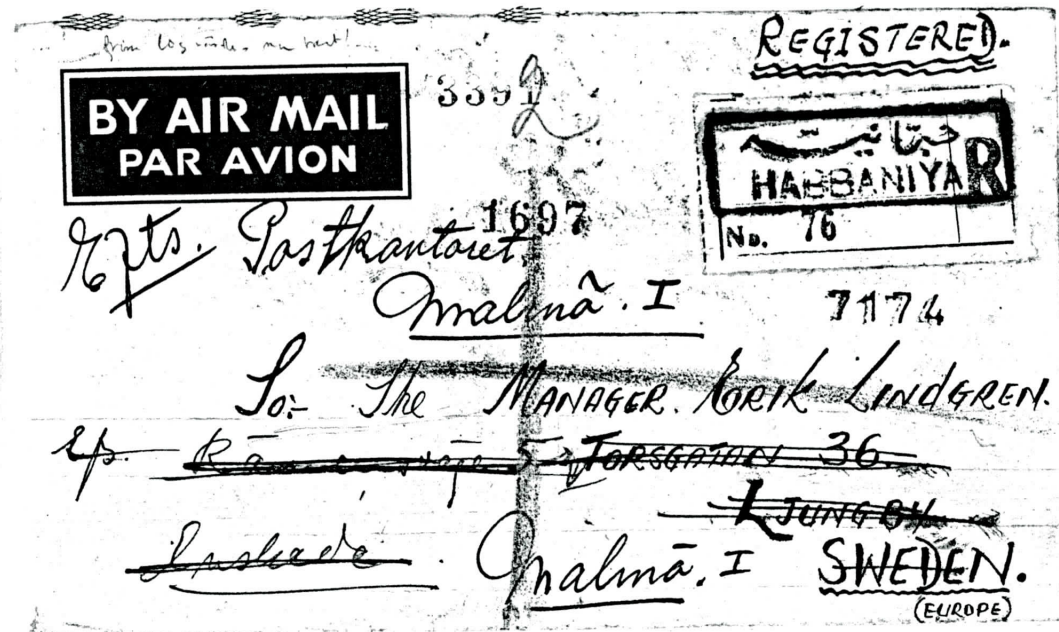 REGISTERED.
BY AIR MAIL
PAR AVION
3392
حبانيت
HABBANIYA R
No. 76
1697
Efts. Postkontoret.
Malmö. I
7174
To:- The MANAGER. ERIK LINDGREN.
TORSGATAN 36
LJUNGBY
Enskede. Malmö. I SWEDEN.
(EUROPE)